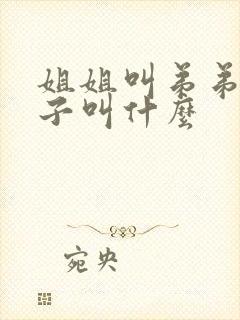 姐姐叫弟弟
子叫什麼
宛央